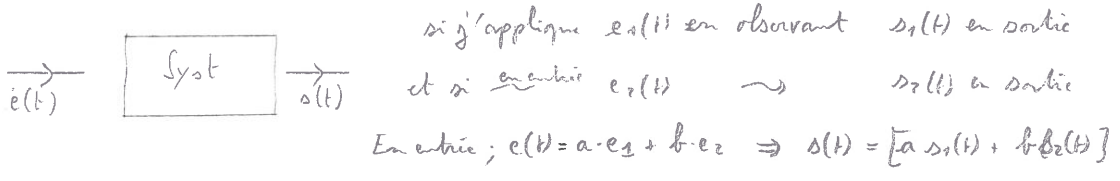 si j'applique e₁(t) en observant s₁(t) en sortie
Syst
e(t)
s(t)
et si en entrée e₂(t) ⤳ s₂(t) en sortie
En entrée ; e(t) = a·e1 + b·e₂ ⇒ s(t) = [a s₁(t) + b s₂(t)]